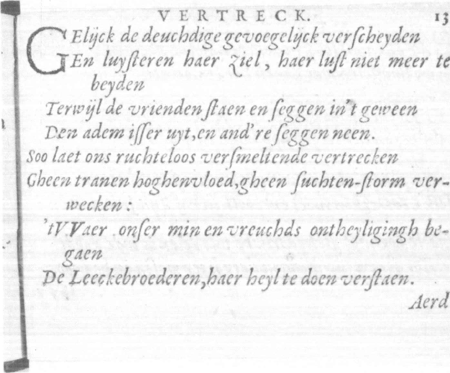 VERTRECK. 13
GElijck de deuchdige gevoegelijck verscheyden
En luysteren haer ziel, haer lust niet meer te
beyden
Terwijl de vrienden staen en seggen in't geween
Den adem isser uyt, en and're seggen neen.
Soo laet ons ruchteloos versmeltende vertrecken
Gheen tranen hoghenvloed, gheen suchten-storm ver-
wecken:
'tVVaer onser min en vreuchds ontheyligingh be-
gaen
De Leeckebroederen, haer heyl te doen verstaen.
Aerd